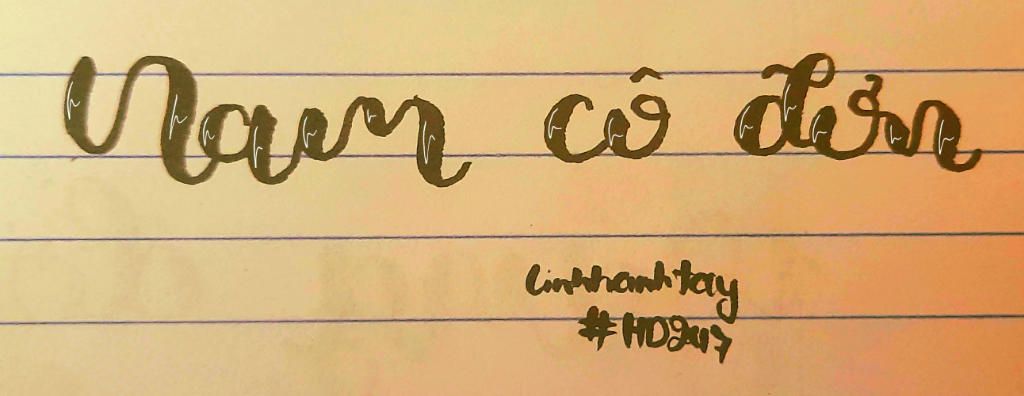 Nam cô đơn
linhhanhtay
#HD247